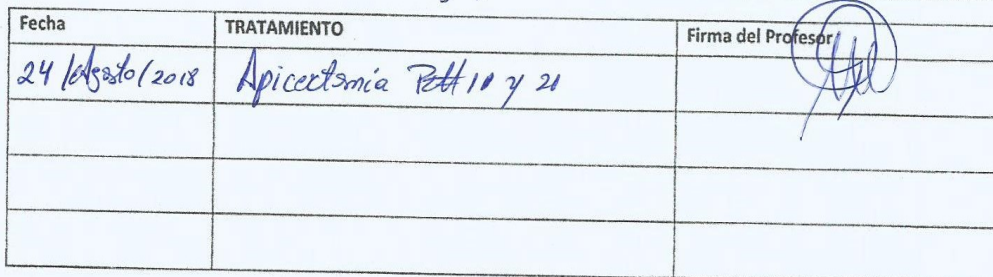 Fecha TRATAMIENTO Firma del Profesor
24/Agosto/2018 Apicectomía 11 y 21